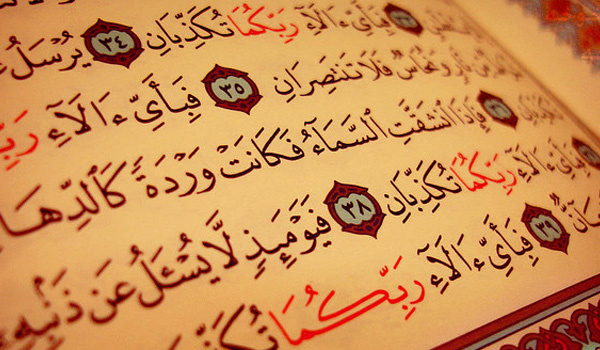 فَبِأَىِّ ءَالَآءِ رَبِّكُمَا تُكَذِّبَانِ ٣٤ يُرْسَلُ
نَّارٍ وَنُحَاسٌ فَلَا تَنتَصِرَانِ ٣٥ فَبِأَىِّ ءَالَآءِ رَبِّ
٣٦ فَإِذَا ٱنشَقَّتِ ٱلسَّمَآءُ فَكَانَتْ وَرْدَةً كَٱلدِّهَا
فَبِأَىِّ ءَالَآءِ رَبِّكُمَا تُكَذِّبَانِ ٣٨ فَيَوْمَئِذٍ لَّا يُسْـَٔلُ عَن ذَنۢبِهِۦٓ
٣٩ فَبِأَىِّ ءَالَآءِ رَبِّكُمَا تُكَذِّ